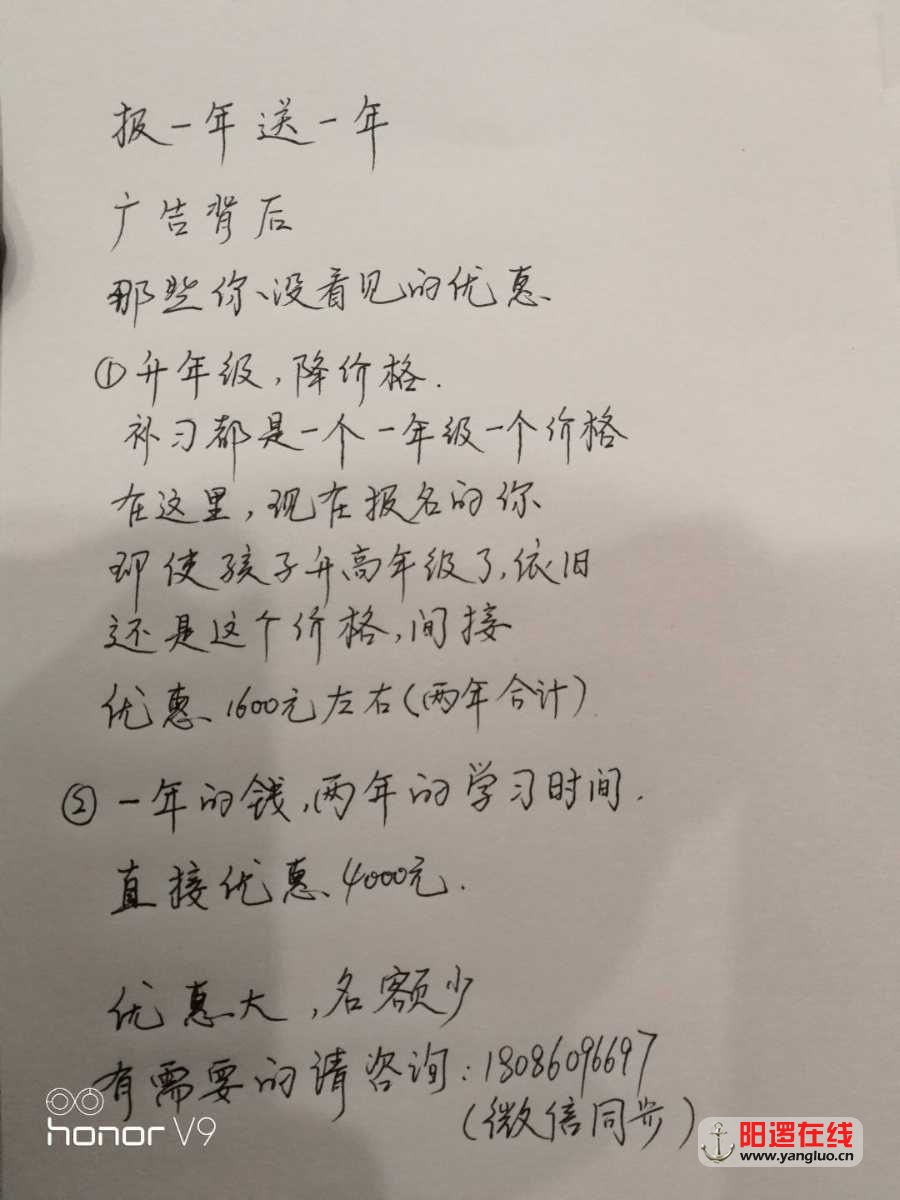 报一年送一年
广告背后
那些你没看见的优惠
①升年级,降价格.
补习都是一个一年级一个价格
在这里,现在报名的你
即使孩子升高年级了,依旧
还是这个价格,间接
优惠1600元左右(两年合计)
②一年的钱,两年的学习时间.
直接优惠4000元.
优惠大,名额少
有需要的请咨询:18086096697
(微信同步)
honor V9
阳逻在线
www.yangluo.cn